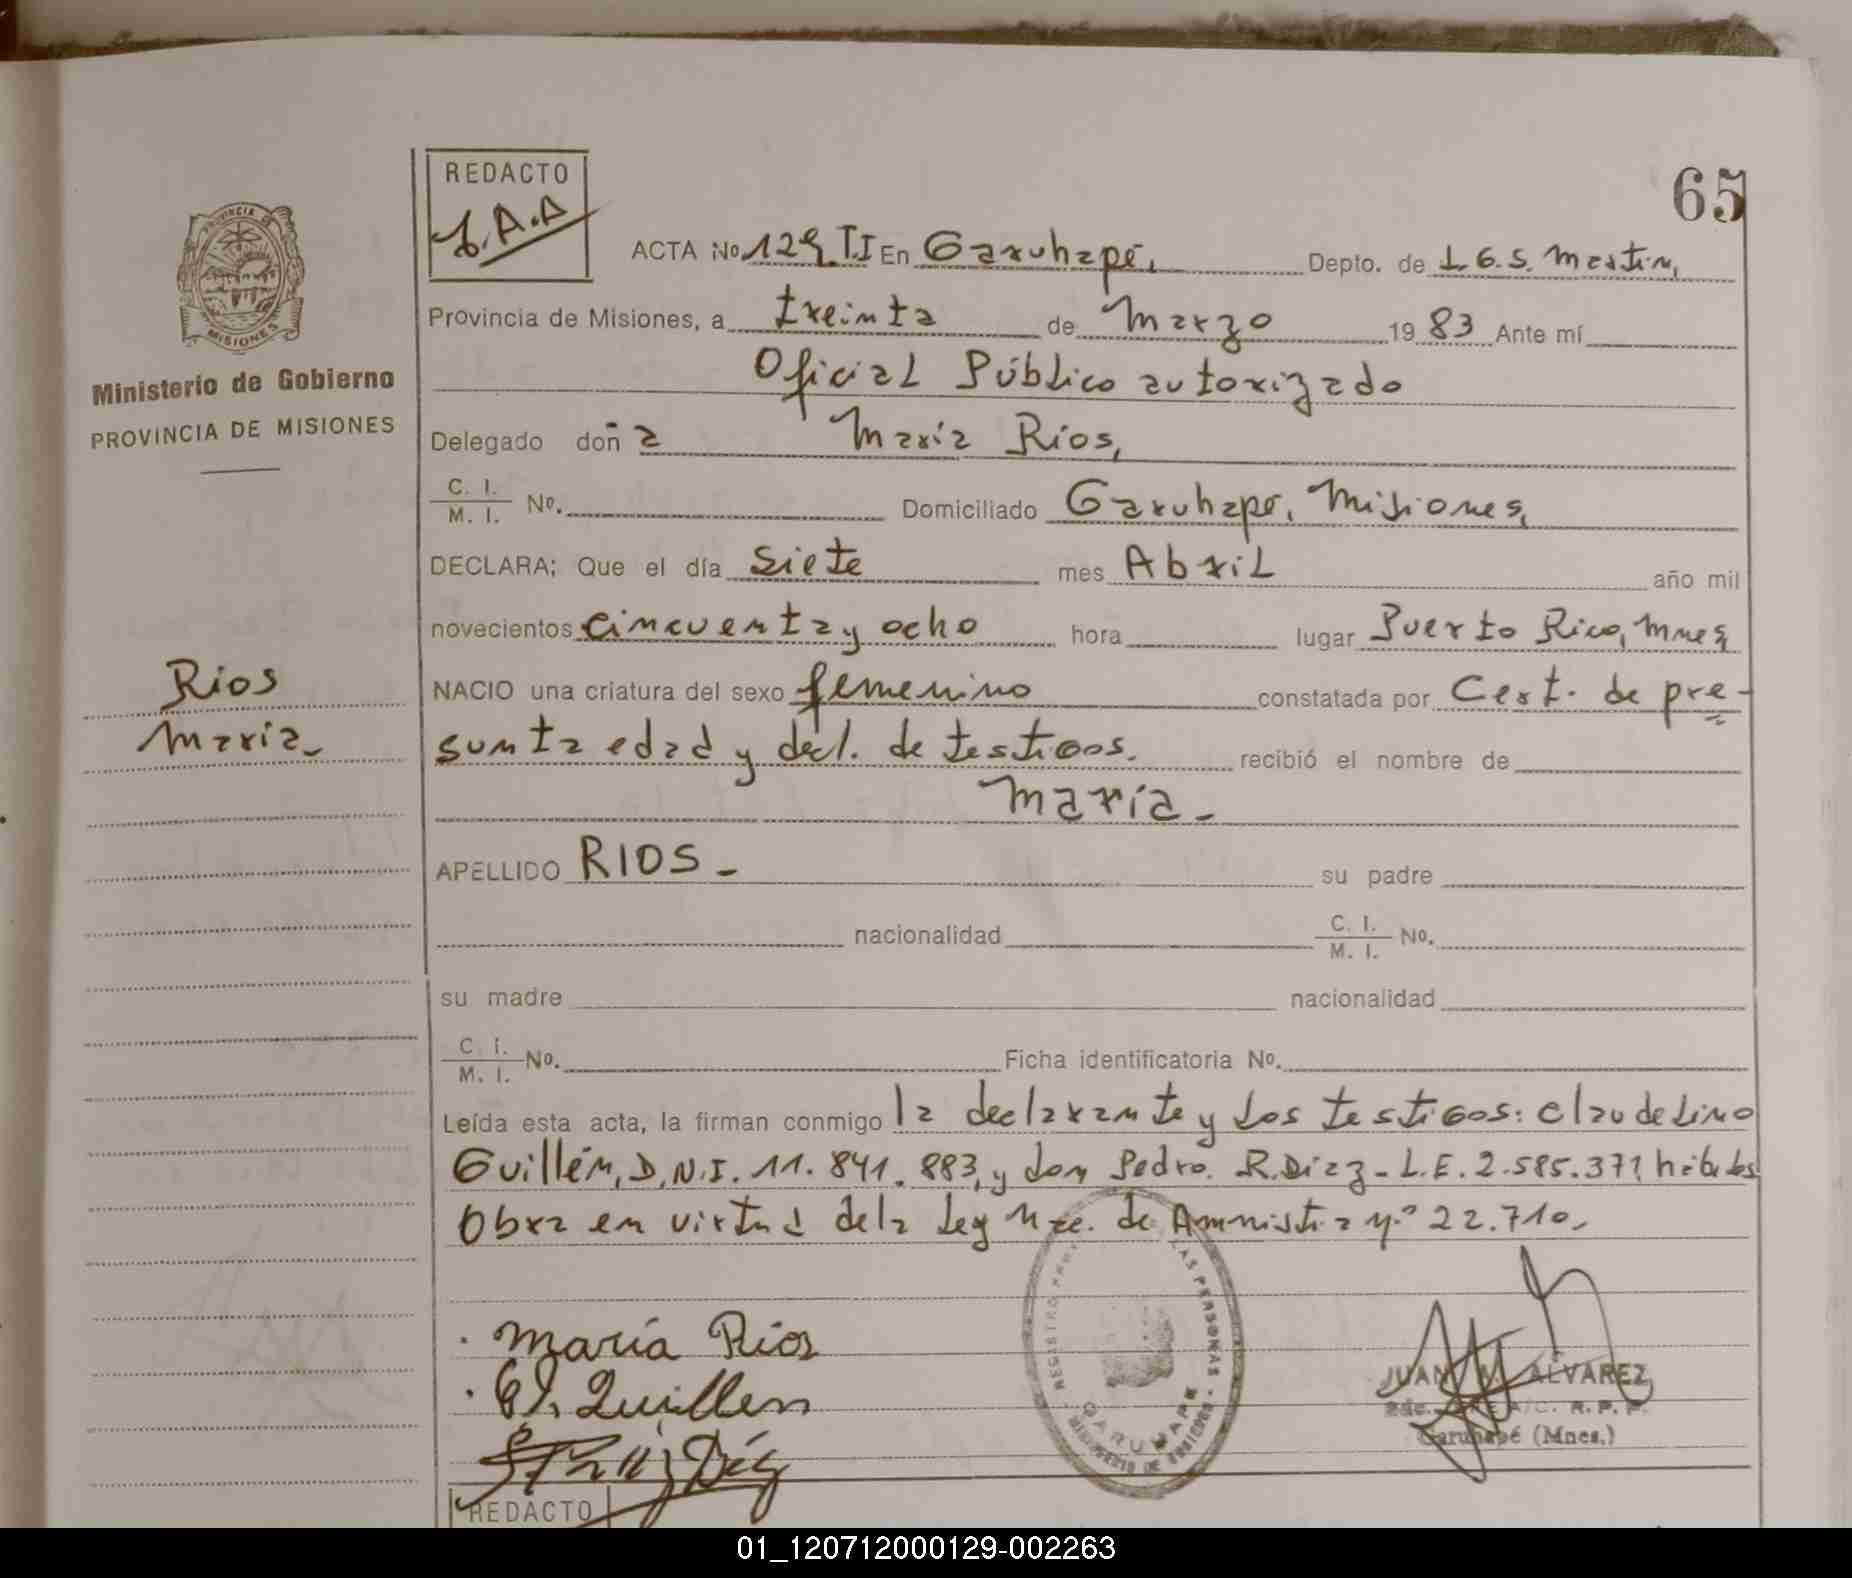 65
REDACTO
ACTA No 129 T.I En Garuhapé, Depto. de L.G.S. Martín,
PROVINCIA DE MISIONES
Provincia de Misiones, a treinta de Marzo 1983 Ante mí
Oficial Público autorizado
Ministerio de Gobierno
PROVINCIA DE MISIONES
Delegado doña María Ríos,
C. I.
M. I. No. Domiciliado Garuhapé, Misiones,
DECLARA; Que el día Siete mes Abril año mil
novecientos cincuenta y ocho hora lugar Puerto Rico, Mnes,
Rios
María-
NACIO una criatura del sexo femenino constatada por Cert. de pre-
sunta edad y decl. de testigos. recibió el nombre de
María-
APELLIDO RIOS- su padre
nacionalidad C. I.
M. I. No.
su madre nacionalidad
C. I.
M. I. No. Ficha identificatoria No.
Leída esta acta, la firman conmigo la declarante y los testigos: Claudelino
Guillén, D.N.I. 11.841.883, y don Pedro R. Diaz- L.E. 2.585.371 hábiles
Obra en virtud de la Ley Nac. de Amnistia nº 22.710.
María Ríos
Cl. Guillen
REGISTRO LAS PERSONAS - GARUHAPE
MINISTERIO DE GOBIERNO
JUAN M. ALVAREZ
R. P. P.
Garuhapé (Mnes.)
REDACTO
01_120712000129-002263